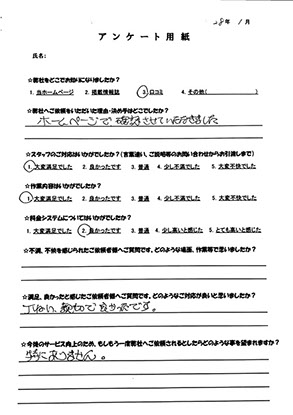 28年 1月
アンケート用紙
氏名:
☆弊社をどこでお知りになりましたか?
1. 当ホームページ 2. 掲載情報誌 3. 口コミ 4. その他( )
☆弊社へご依頼をいただいた理由・決め手はどこでしたか?
ホームページで確認させていただきました
☆スタッフのご対応はいかがでしたか?(言葉遣い、ご説明等のお問い合わせからお引渡しまで)
1. 大変満足でした 2. 良かったです 3. 普通 4. 少し不満でした 5. 大変不快でした
☆作業内容はいかがでしたか?
1. 大変満足でした 2. 良かったです 3. 普通 4. 少し不満でした 5. 大変不快でした
☆料金システムについてはいかがでしたか?
1. 大変満足でした 2. 良かったです 3. 普通 4. 少し高いと感じた 5. とても高いと感じた
☆不満、不快を感じられたご依頼者様へご質問です。どのような場面、作業等で思いましたか?
☆満足、良かったと感じたご依頼者様へご質問です。どのようなご対応が良いと思いましたか?
ていねい、親切で良かったです。
☆今後のサービス向上のため、もしもう一度弊社へご依頼されるとしたらどのような事を望まれますか?
特にありません。